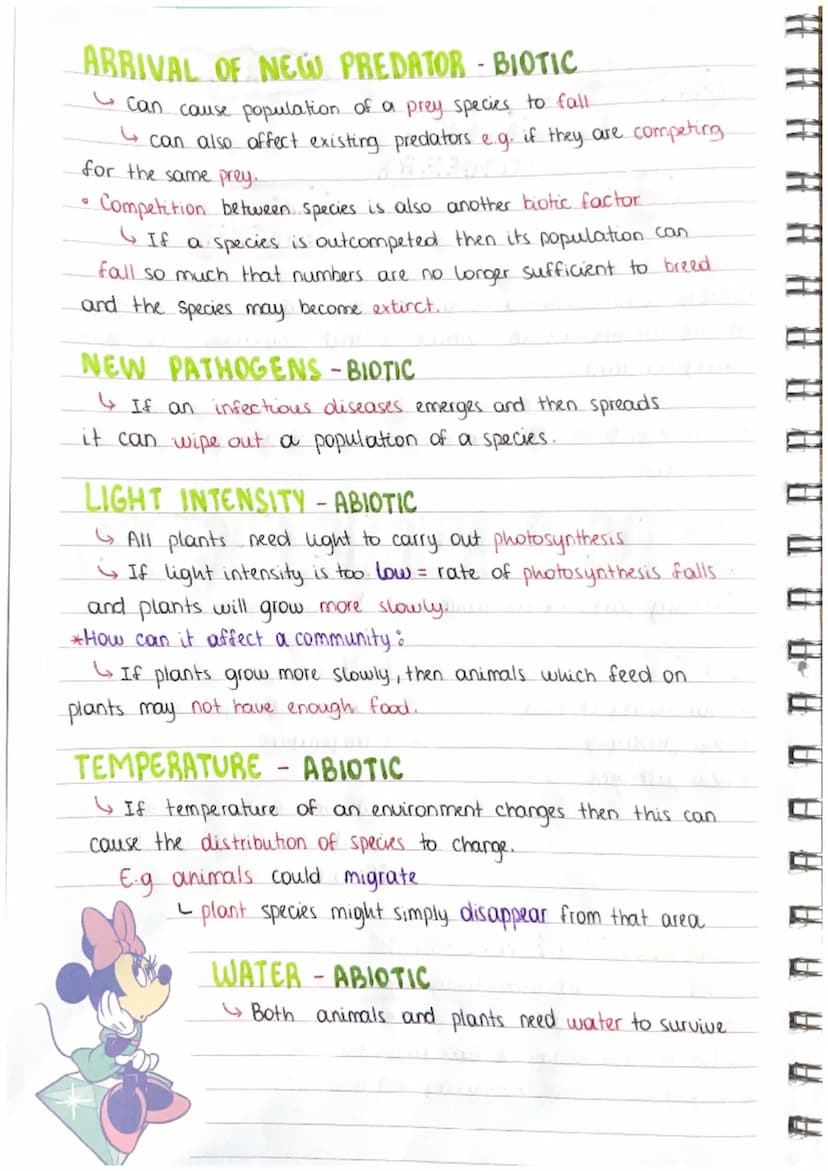 ARRIVAL OF NEW PREDATOR - BIOTIC
↳ Can cause population of a prey species to fall
↳ can also affect existing predators e.g. if they are competing
for the same prey.
• Competition between species is also another biotic factor
↳ If a species is outcompeted then its population can
fall so much that numbers are no longer sufficient to breed
and the species may become extinct.
NEW PATHOGENS - BIOTIC
↳ If an infectious diseases emerges and then spreads
it can wipe out a population of a species.
LIGHT INTENSITY - ABIOTIC
↳ All plants need light to carry out photosynthesis
↳ If light intensity is too low = rate of photosynthesis falls
and plants will grow more slowly.
*How can it affect a community:
↳ If plants grow more slowly, then animals which feed on
plants may not have enough food.
TEMPERATURE - ABIOTIC
↳ If temperature of an environment changes then this can
cause the distribution of species to change.
E.g animals could migrate
↳ plant species might simply disappear from that area
WATER - ABIOTIC
↳ Both animals and plants need water to survive